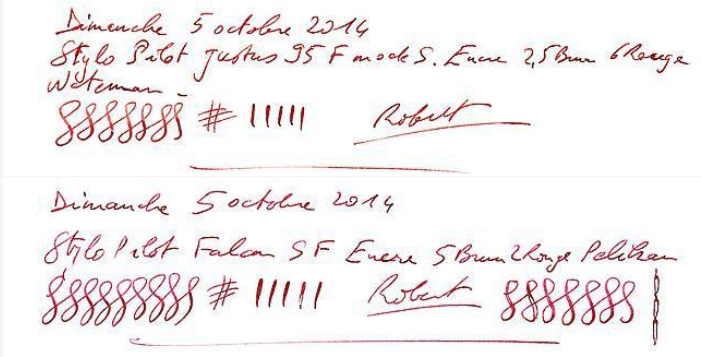 Dimanche 5 octobre 2014
Stylo Pilot Justus 95 F mode S. Encre 2,5 Brun 6 Rouge
Waterman -
# Robert
Dimanche 5 octobre 2014
Stylo Pilot Falcon SF Encre 5 Brun 2 Rouge Pelikan
# Robert